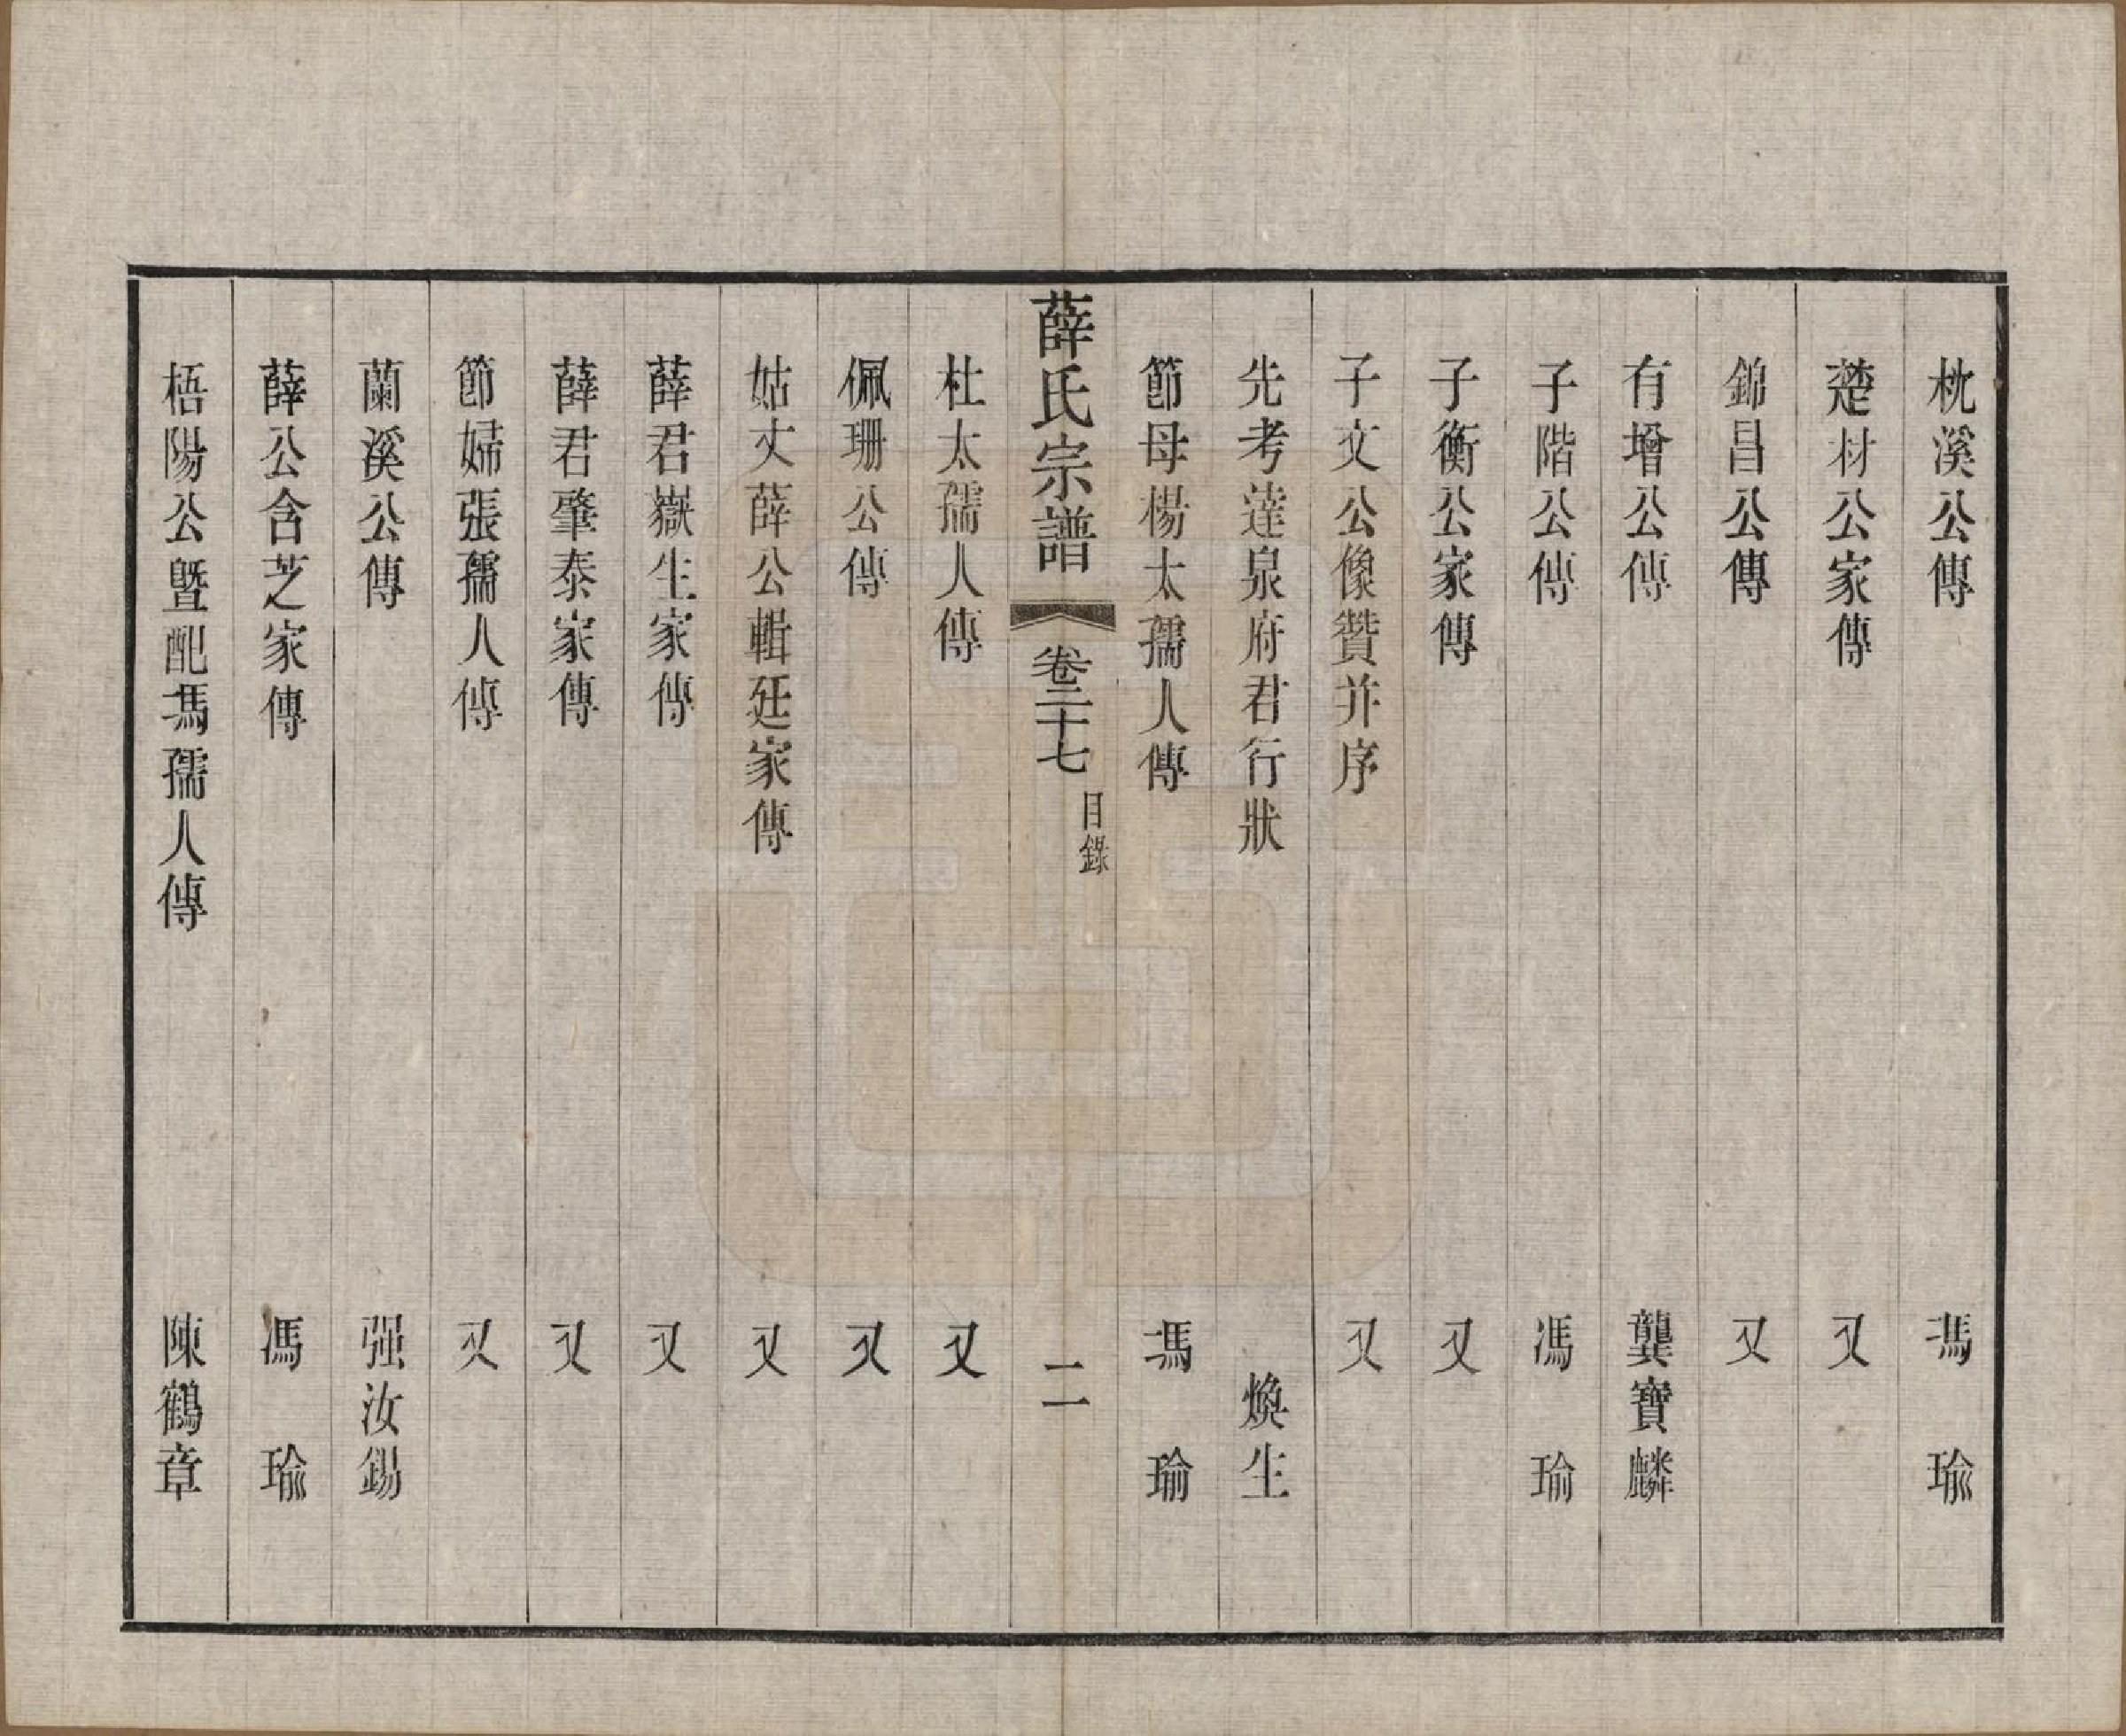 枕溪公傳　馮瑜
楚材公家傳　又
錦昌公傳　又
有增公傳　龔寶麟
子階公傳　馮瑜
子衡公家傳　又
子文公像贊并序　又
先考蓬泉府君行狀　煥生
節母楊太孺人傳　馮瑜
薛氏宗譜　卷二十七　目錄　二
杜太孺人傳　又
佩珊公傳　又
姑丈薛公輯廷家傳　又
薛君嶽生家傳　又
薛君肇泰家傳　又
節婦張孺人傳　又
蘭溪公傳　强汝錫
薛公含芝家傳　馮瑜
梧陽公曁配馮孺人傳　陳鶴章